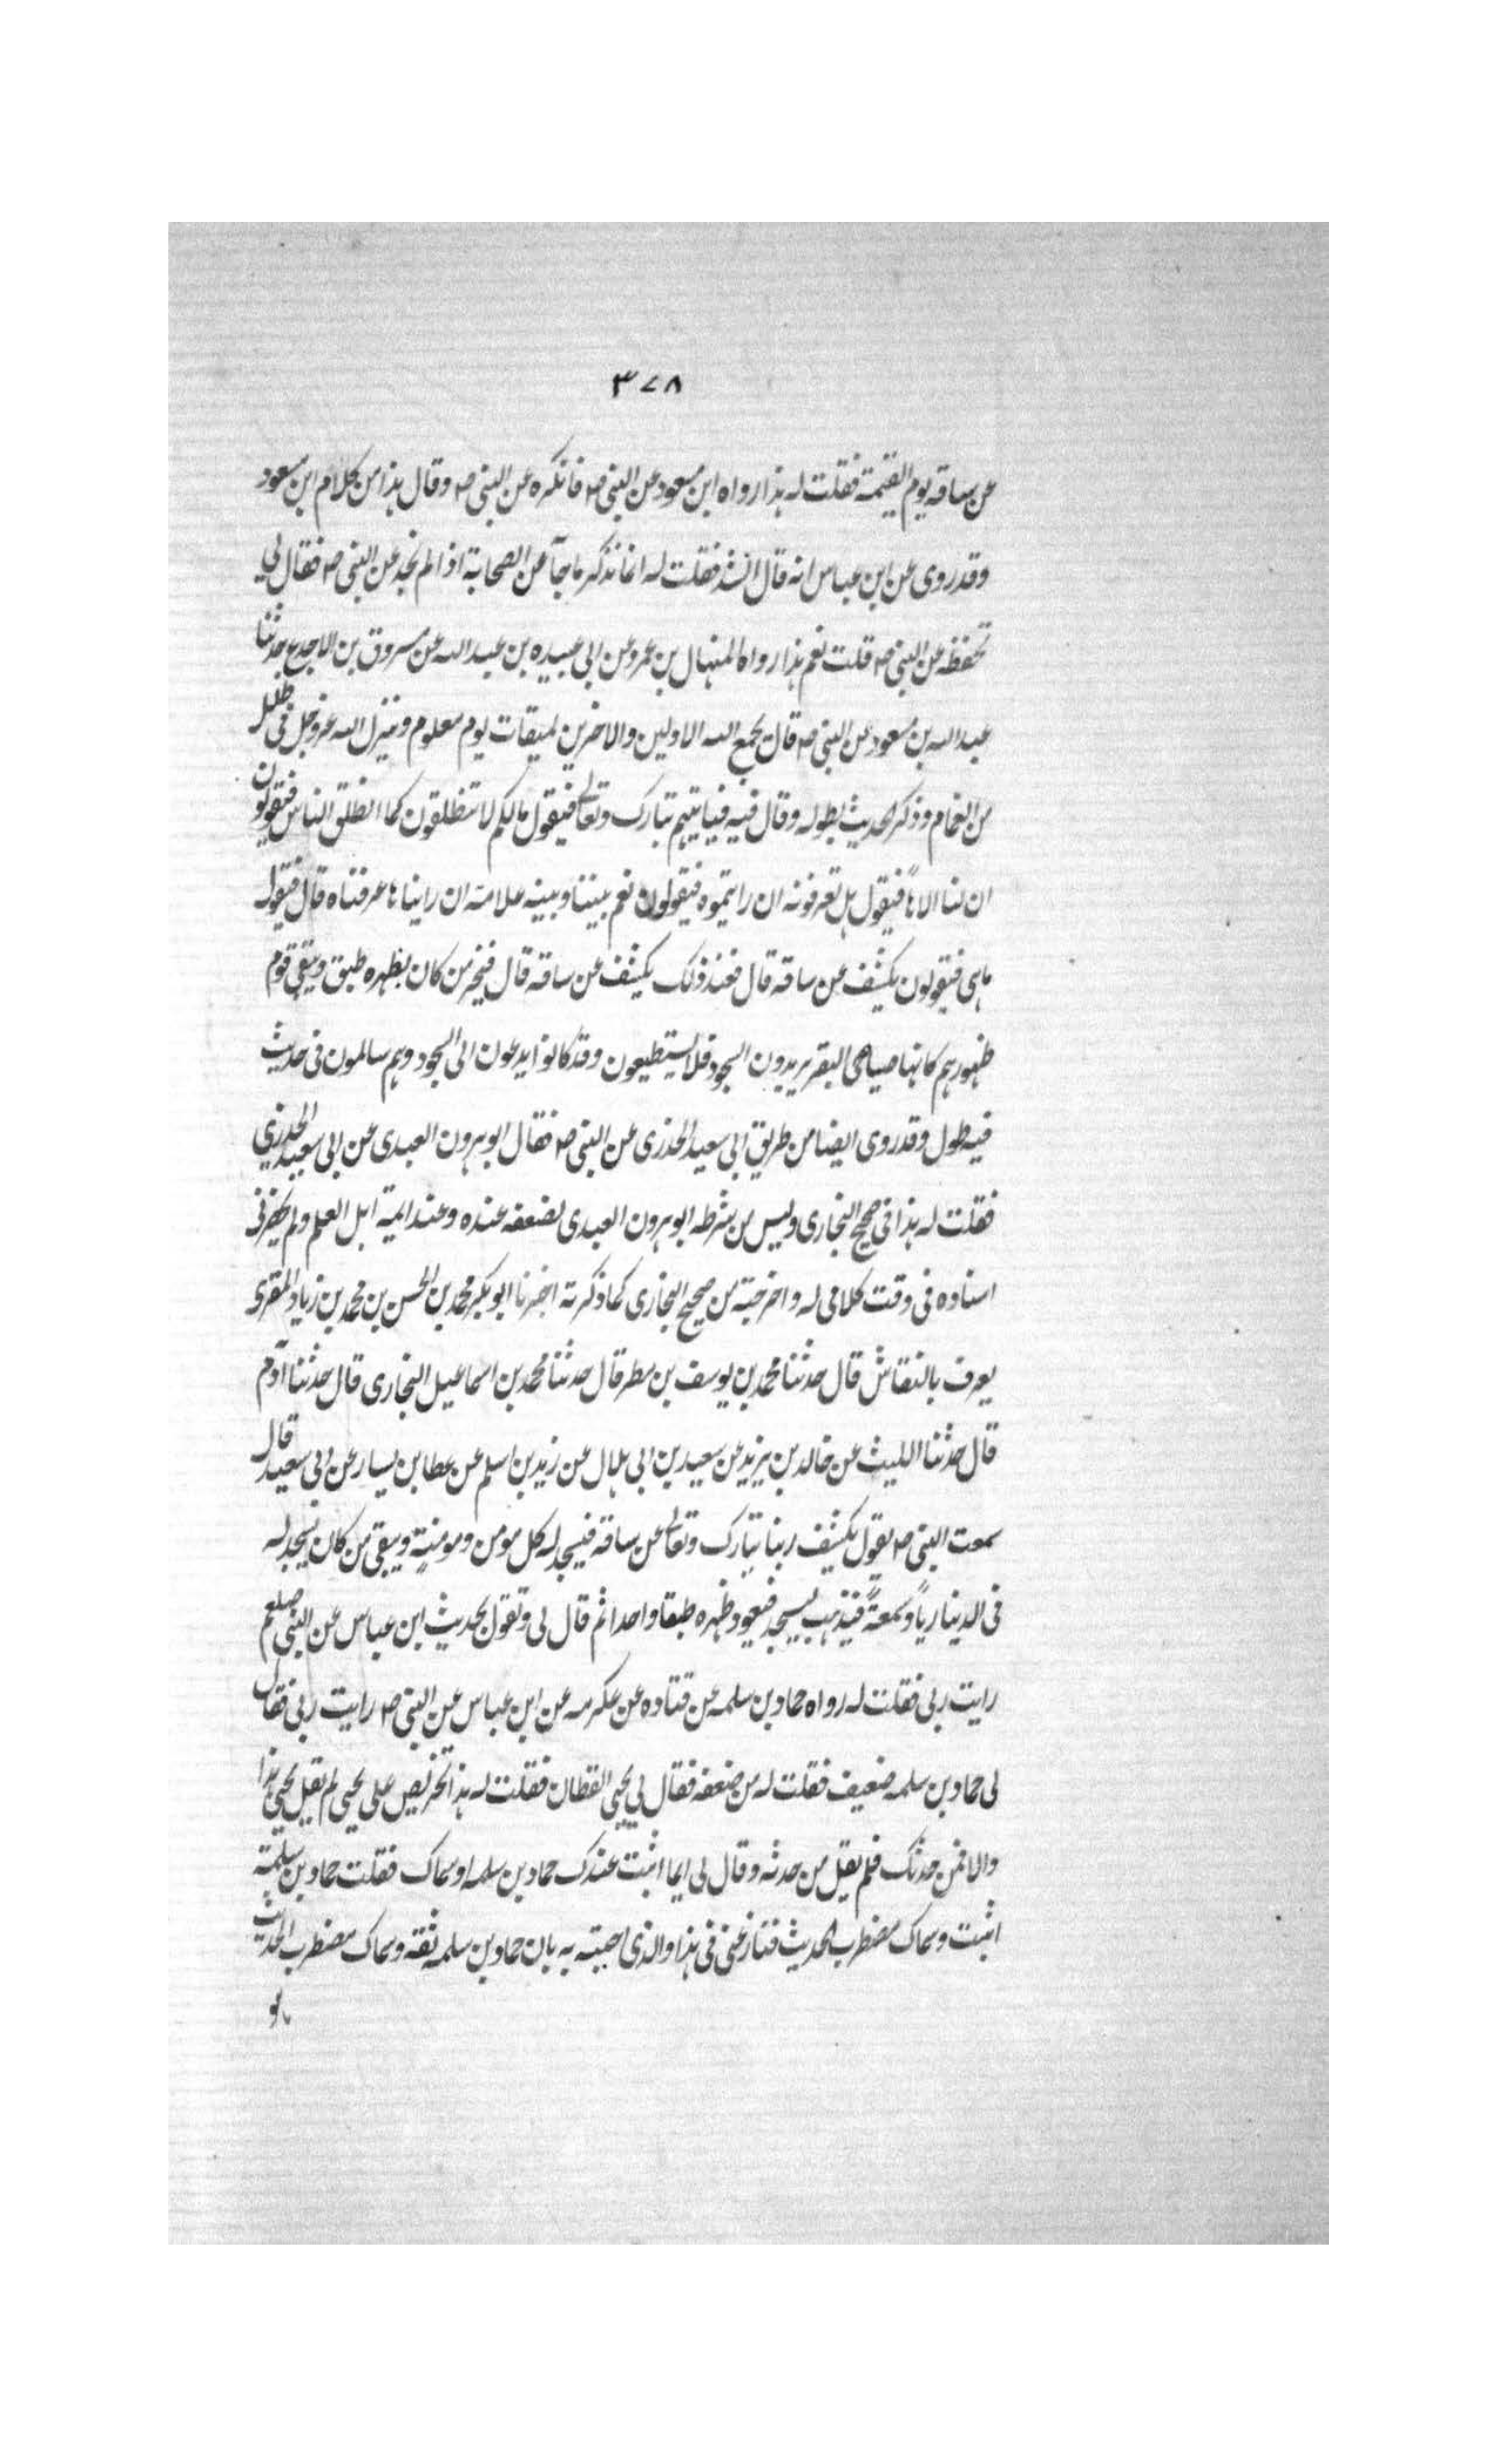 ٣٧٨
عن ساقه يوم القيمة فقلت له هذا رواه ابن مسعود عن النبي ص فانكره عن النبي ص وقال هذا من كلام ابن مسعود
وقد روى عن ابن عباس انه قال الشد فقلت له انما نذكر ما جآ عن الصحابة اذا لم نجد عن النبي ص فقال لي
تحفظه عن النبي ص قلت نعم هذا رواه المنهال بن عمرو عن ابي عبيده بن عبد الله عن مسروق بن الاجدع حدثنا
عبد الله بن مسعود عن النبي ص قال يجمع الله الاولين والاخرين لميقات يوم معلوم وينزل الله عز وجل في ظلل
من الغمام وذكر الحديث بطوله وقال فيه فياتيهم تبارك وتعالى فيقول مالكم لا تنطلقون كما انطلق الناس فيقولون
ان لنا الاهاً فيقول هل تعرفونه ان رايتموه فيقولون نعم بيننا وبينه علامة ان رايناها عرفناه قال فيقول
ماهي فيقولون يكشف عن ساقه قال فعند ذلك يكشف عن ساقه قال فيخر من كان بظهره طبق ويبقى قوم
ظهورهم كانها صياصى البقر يريدون السجود فلا يستطيعون وقد كانوا يدعون الى السجود وهم سالمون في حديث
فيه طول وقد روى ايضا من طريق ابي سعيد الخدرى عن النبي ص فقال ابو هرون العبدى عن ابي سعيد الخدري
فقلت له هذا في صحيح البخارى وليس من شرطه ابو هرون العبدى لضعفه عنده وعند ايمة اهل العلم ولم يحضرني
اسناده في وقت كلامي له واخرجته من صحيح البخارى كما ذكرته اخبرنا ابو بكر محمد بن الحسن بن محمد بن زياد المقرى
يعرف بالنقاش قال حدثنا محمد بن يوسف بن مطر قال حدثنا محمد بن اسماعيل البخارى قال حدثنا آدم
قال حدثنا الليث عن خالد بن يزيد عن سعيد بن ابي هلال عن زيد بن اسلم عن عطا بن يسار عن ابي سعيد قال
سمعت النبي ص يقول يكشف ربنا تبارك وتعالى عن ساقه فيسجد له كل مومن ومومنةٍ ويبقى من كان يسجد له
في الدنيا رياً وسمعةً فيذهب ليسجد فيعود ظهره طبقا واحدا ثم قال لي وتقول بحديث ابن عباس عن النبي صلعم
رايت ربي فقلت له رواه حماد بن سلمه عن قتاده عن عكرمه عن ابن عباس عن النبي ص رايت ربي فقال
لي حماد بن سلمه ضعيف فقلت له من ضعفه فقال لي يحيى القطان فقلت له هذا تخرص على يحيى لم يقل يحيى هذا
والا فمن حدثك فلم يقل من حدثه وقال لي ايما اثبت عندك حماد بن سلمه او سماك فقلت حماد بن سلمة
اثبت وسماك مضطرب الحديث فنازعني في هذا والذى اجبته به بان حماد بن سلمه ثقة وسماك مضطرب الحديث